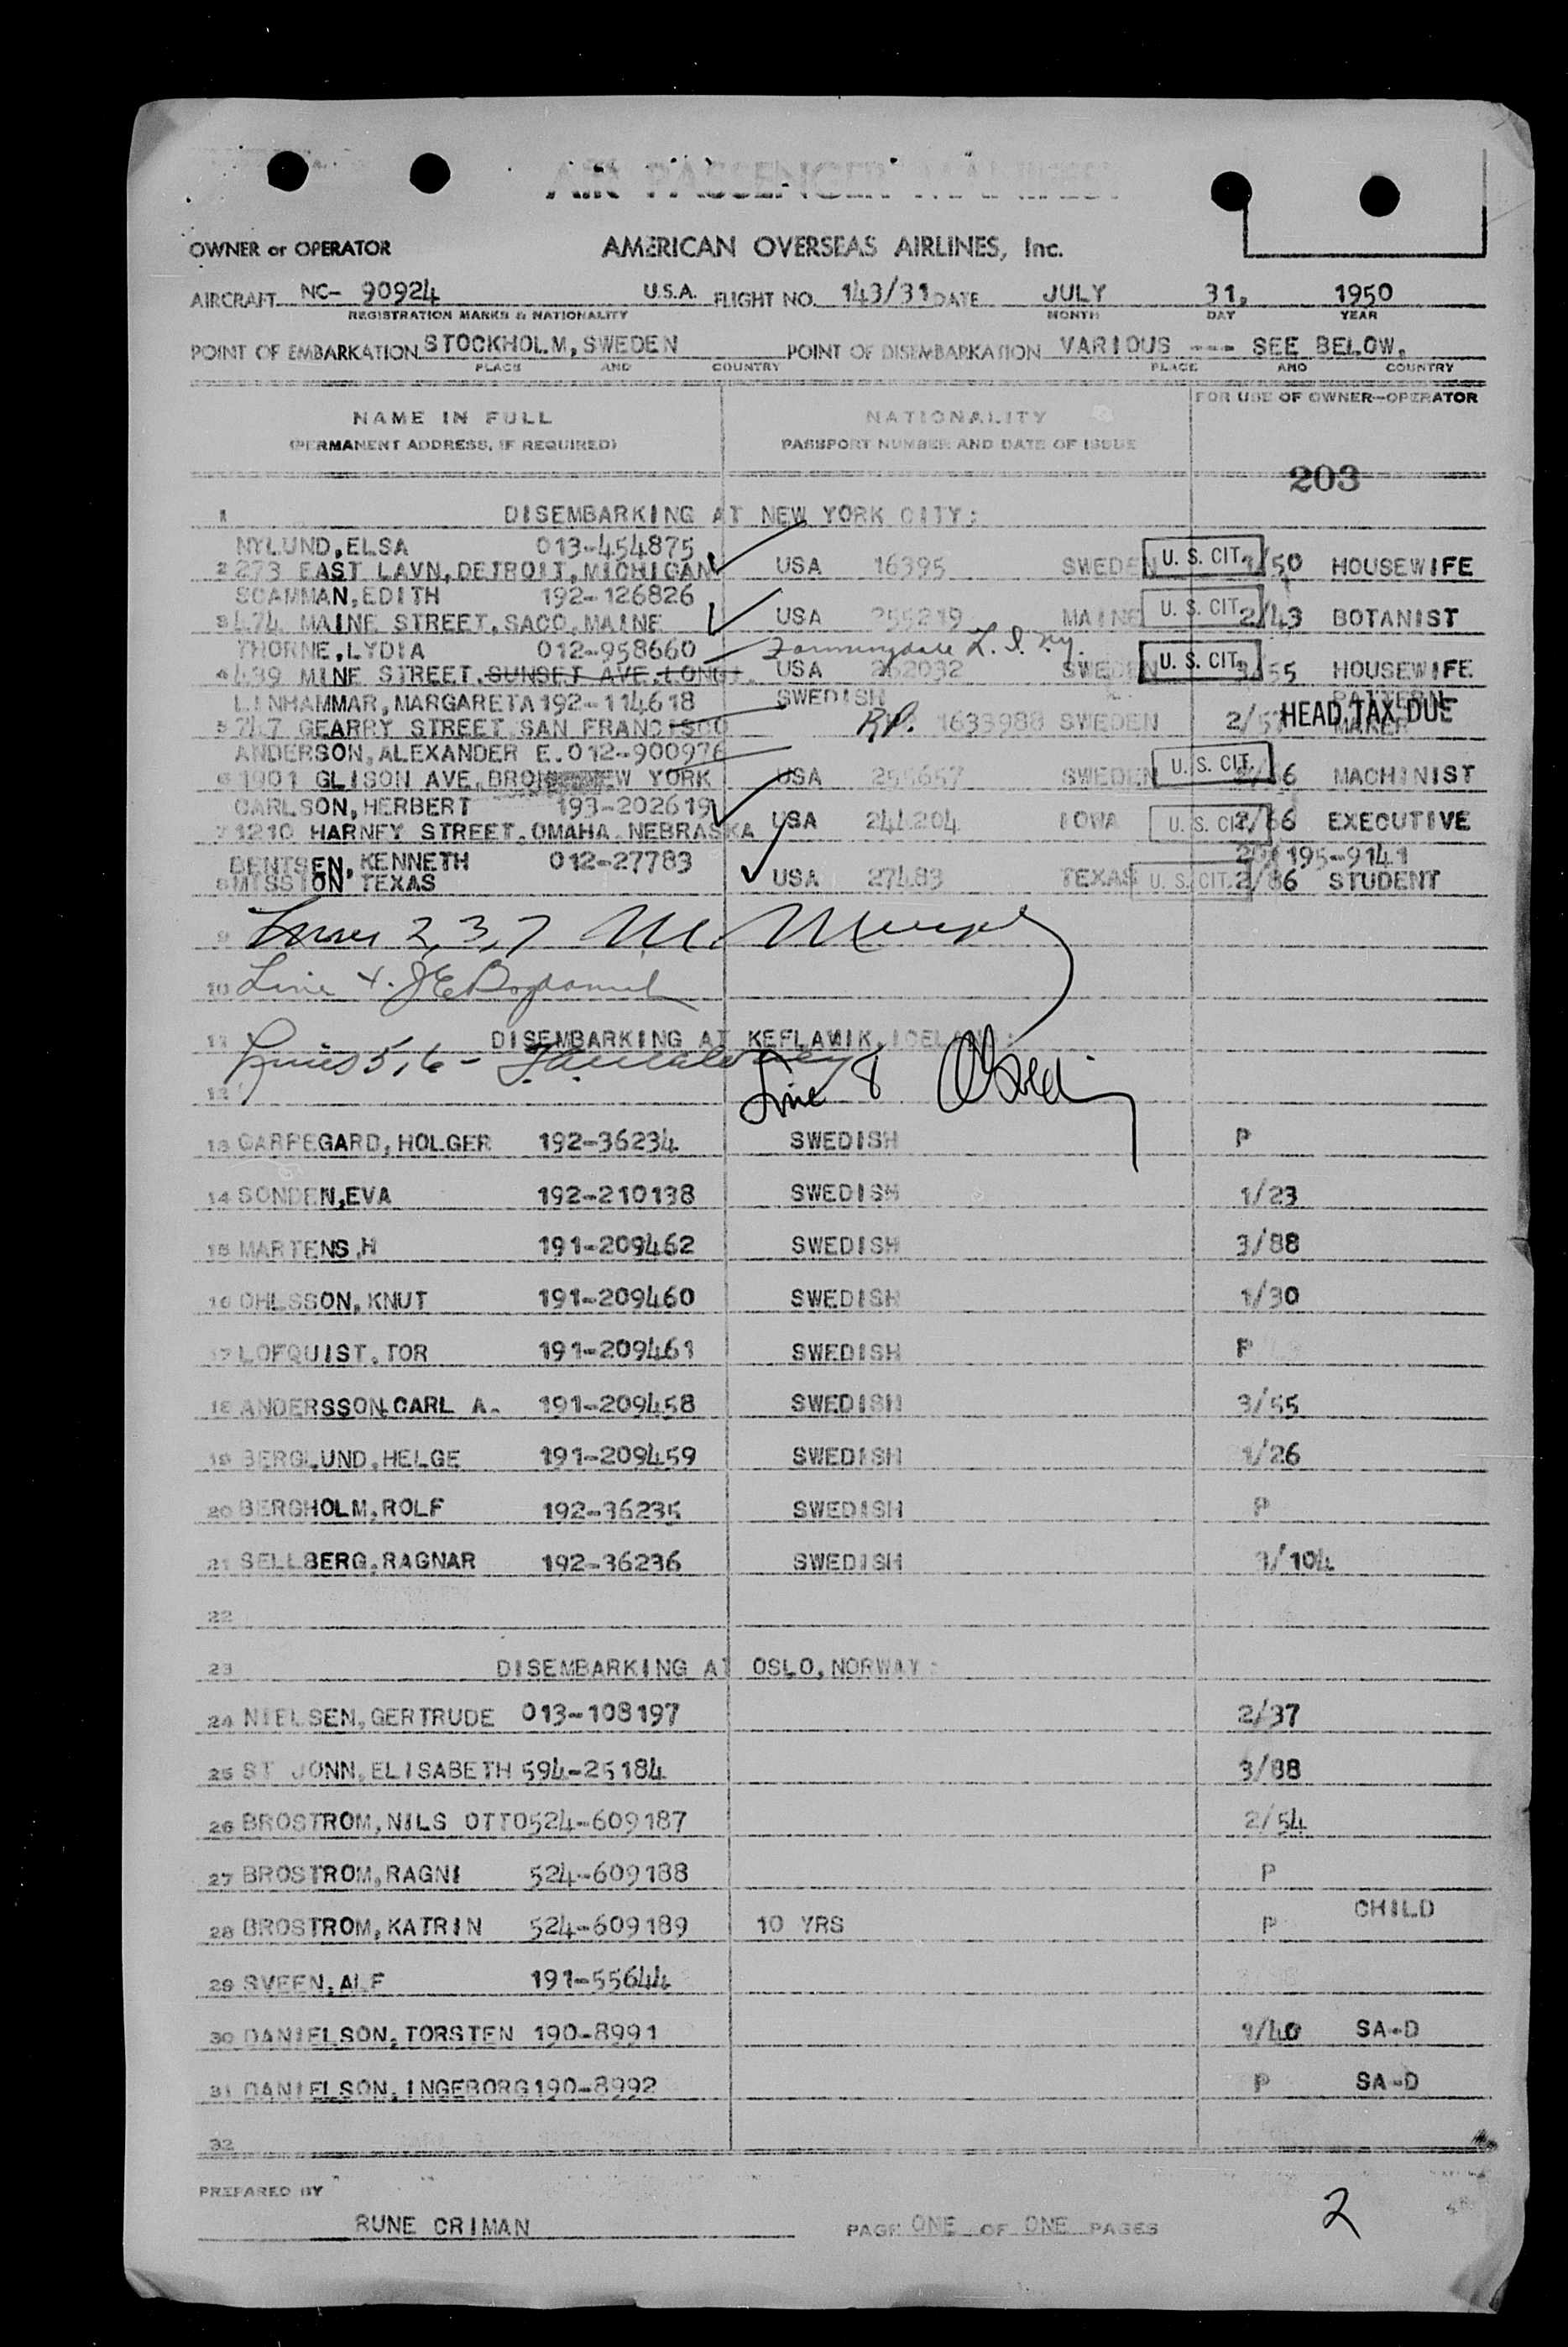 AIR PASSENGER MANIFEST
OWNER or OPERATOR AMERICAN OVERSEAS AIRLINES, Inc.
AIRCRAFT NC- 90924 U.S.A. FLIGHT NO. 143/31 DATE JULY 31, 1950
REGISTRATION MARKS & NATIONALITY MONTH DAY YEAR
POINT OF EMBARKATION STOCKHOLM, SWEDEN POINT OF DISEMBARKATION VARIOUS --- SEE BELOW.
PLACE AND COUNTRY PLACE AND COUNTRY
FOR USE OF OWNER-OPERATOR
NAME IN FULL NATIONALITY
(PERMANENT ADDRESS, IF REQUIRED) PASSPORT NUMBER AND DATE OF ISSUE
203
1 DISEMBARKING AT NEW YORK CITY:
NYLUND, ELSA 013-454875
2 273 EAST LAVN, DETROIT, MICHIGAN USA 16395 SWEDEN U. S. CIT. /50 HOUSEWIFE
SCAMMAN, EDITH 192-126826
3 474 MAINE STREET, SACO, MAINE USA 255219 MAINE U. S. CIT. 2/43 BOTANIST
THORNE, LYDIA 012-958660 Farmingdale L. I. N.Y.
4 439 MINE STREET, SUNSET AVE, LONG I. USA 262032 SWEDEN U. S. CIT. 3/55 HOUSEWIFE
LINHAMMAR, MARGARETA 192-114618 SWEDISH PATTERN
5 747 GEARRY STREET SAN FRANCISCO R.P. 1633988 SWEDEN 2/57 HEAD TAX DUE MAKER
ANDERSON, ALEXANDER E. 012-900976
6 1901 GLISON AVE, BRONX NEW YORK USA 255657 SWEDEN U. S. CIT. /66 MACHINIST
CARLSON, HERBERT 193-202619
7 1210 HARNEY STREET, OMAHA, NEBRASKA USA 244204 IOWA U. S. CIT. 2/66 EXECUTIVE
BENTSEN, KENNETH 012-27783 195-9141
8 MISSION TEXAS USA 27483 TEXAS U. S. CIT. 2/86 STUDENT
9 Lines 2, 3, 7 M. Murphy
10 Line 4. J E
11 DISEMBARKING AT KEFLAVIK, ICELAND:
Lines 5, 6 -
12 Line 8
13 CARPEGARD, HOLGER 192-36234 SWEDISH P
14 SONDEN, EVA 192-210138 SWEDISH 1/23
15 MARTENS, H 191-209462 SWEDISH 3/88
16 OHLSSON, KNUT 191-209460 SWEDISH 1/30
17 LOFQUIST, TOR 191-209461 SWEDISH P
18 ANDERSSON, CARL A. 191-209458 SWEDISH 3/55
19 BERGLUND, HELGE 191-209459 SWEDISH 1/26
20 BERGHOLM, ROLF 192-36235 SWEDISH P
21 SELLBERG, RAGNAR 192-36236 SWEDISH 1/104
22
23 DISEMBARKING AT OSLO, NORWAY:
24 NIELSEN, GERTRUDE 013-108197 2/37
25 ST JONN, ELISABETH 594-25184 3/88
26 BROSTROM, NILS OTTO 524-609187 2/54
27 BROSTROM, RAGNI 524-609188 P
28 BROSTROM, KATRIN 524-609189 10 YRS P CHILD
29 SVEEN, ALF 191-55644
30 DANIELSON, TORSTEN 190-8991 1/40 SA-D
31 DANIELSON, INGEBORG 190-8992 P SA-D
32
PREPARED BY
RUNE CRIMAN PAGE ONE OF ONE PAGES 2